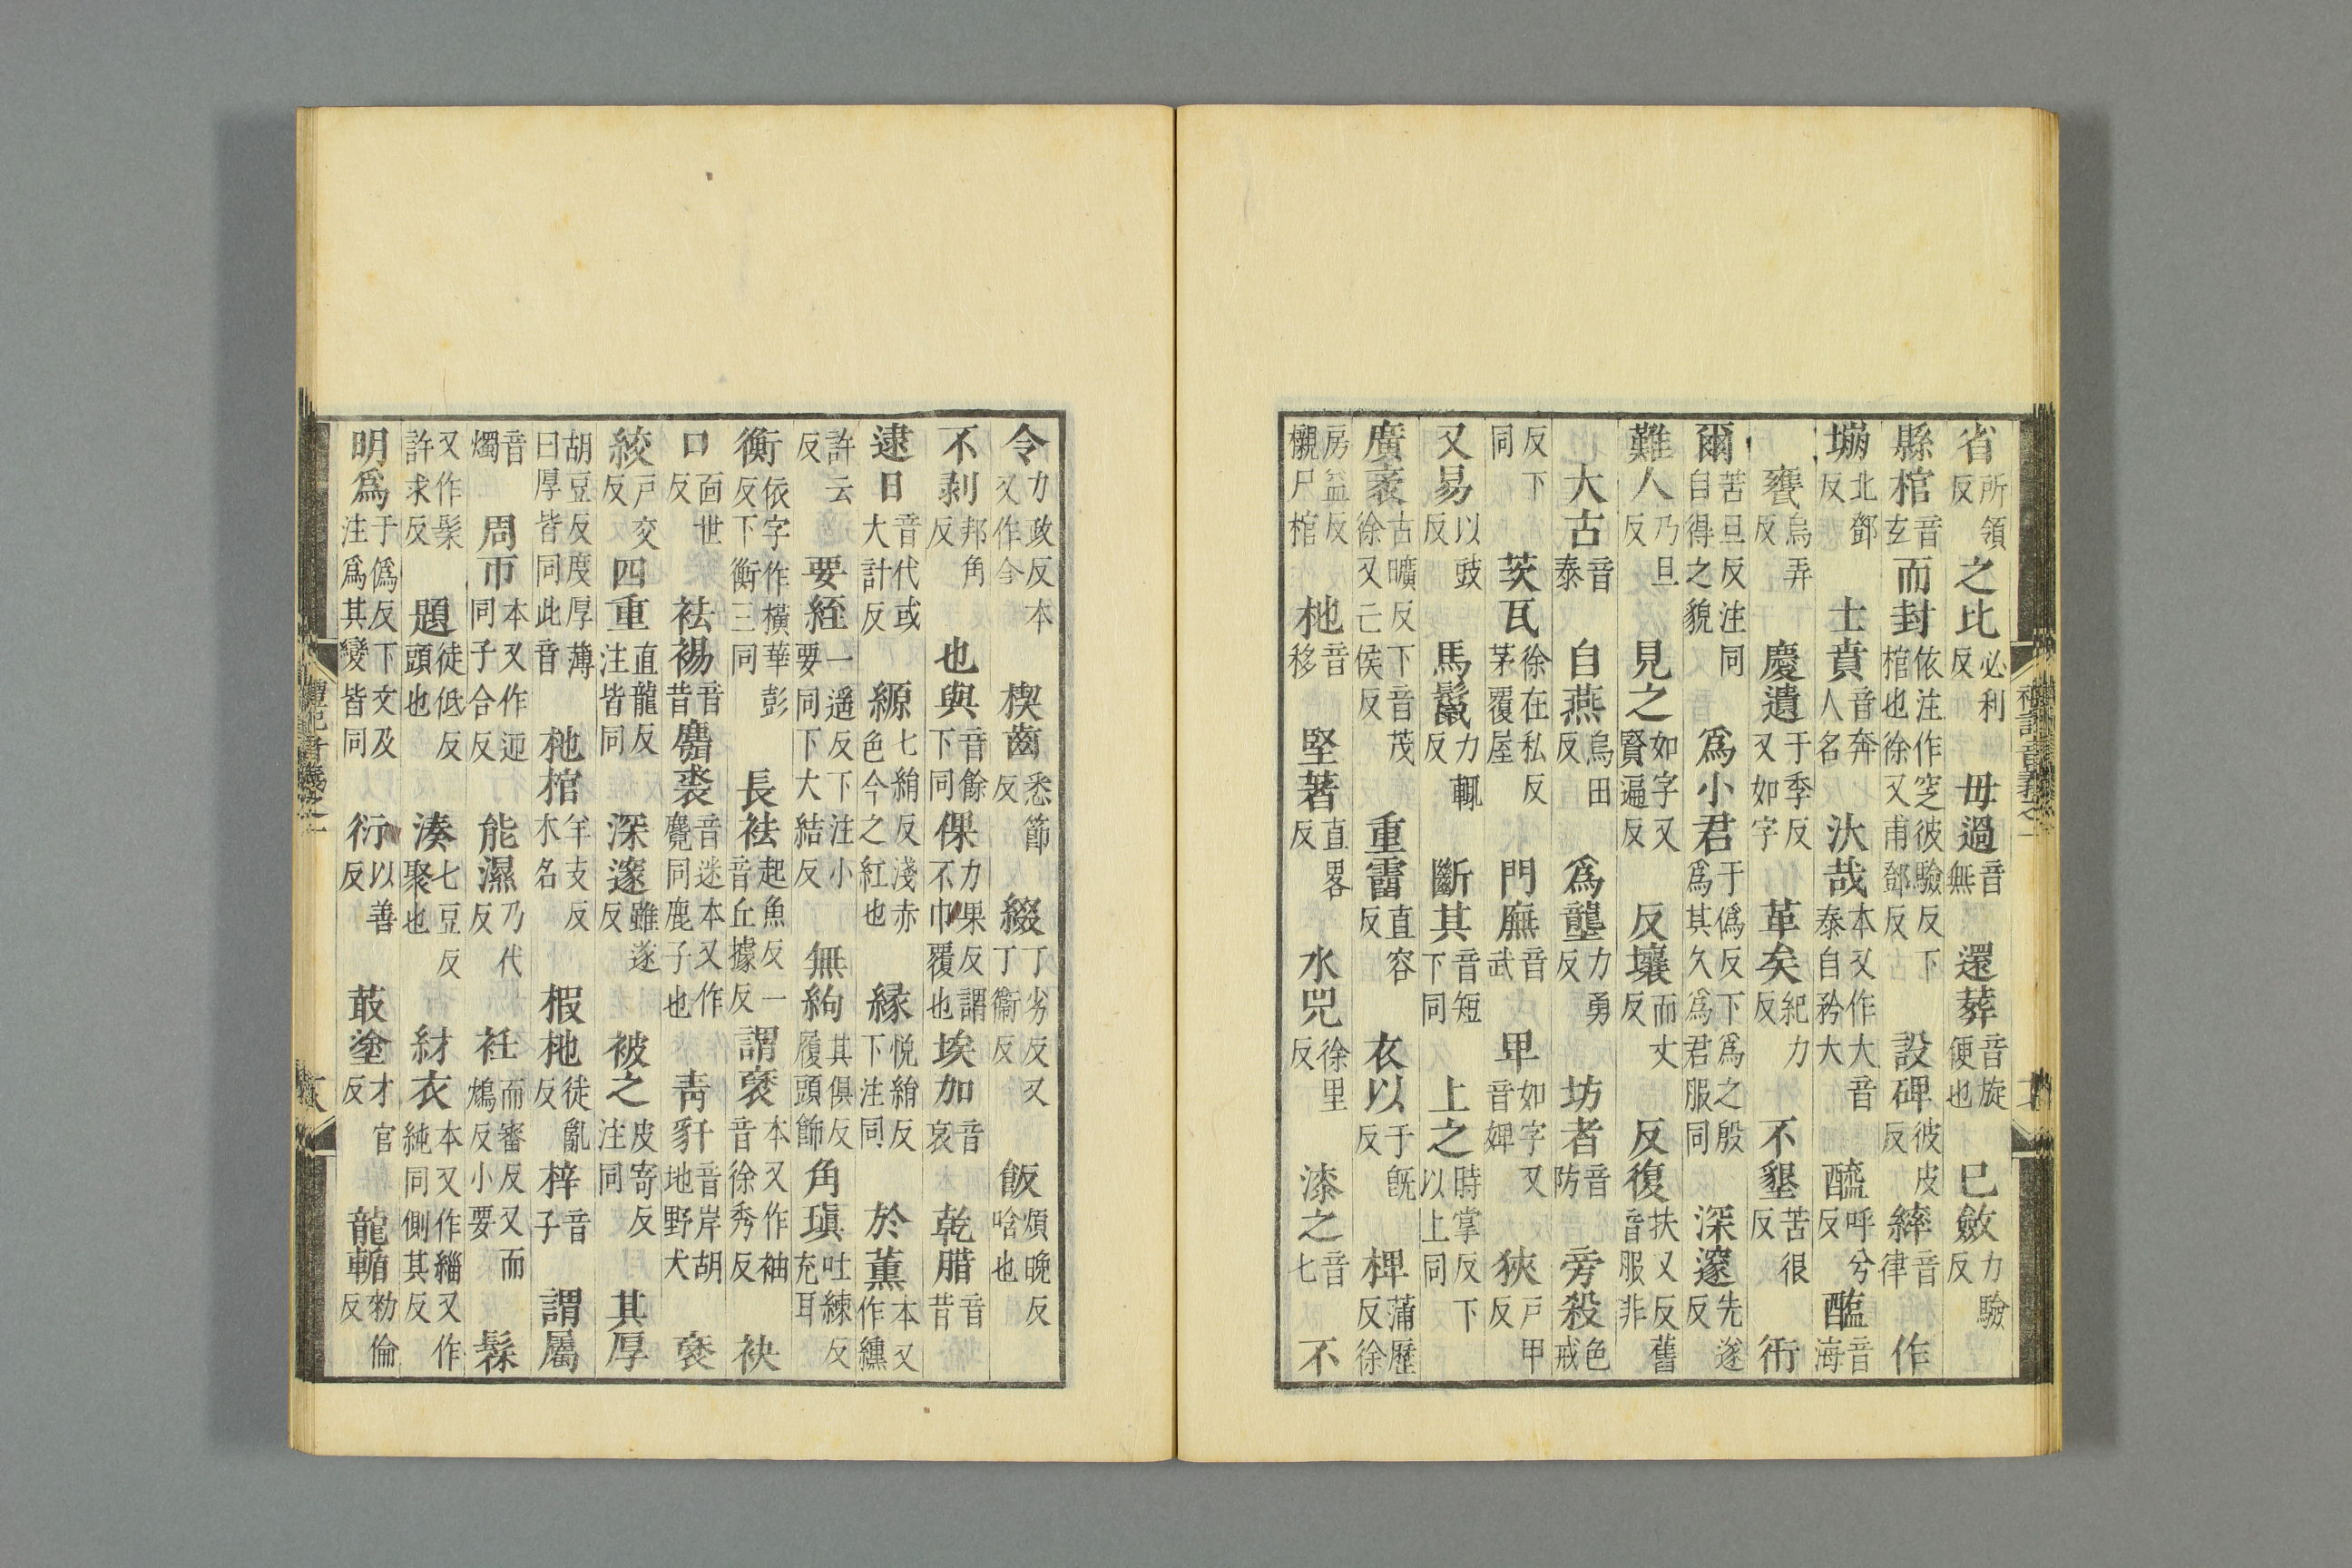 省所領反之比必利反毋過音無還葬音旋便也巳斂力驗反
縣棺音玄而封依注作窆彼驗反下棺也徐又甫鄧反設碑彼皮反繂音律作
塴北鄧反士賁音奔人名汰哉本又作大音泰自矜大醯呼兮反醢音海
甕烏弄反慶遺于季反又如字革矣紀力反不墾苦很反衎
爾苦旦反注同自得之貌爲小君于僞反下爲之殷爲其久爲君服同深邃先遂反
難人乃旦反見之如字又賢遍反反壤而丈反反復扶又反舊音服非
大古音泰自燕烏田反爲壟力勇反坊者音防旁殺色戒
反下同茨瓦徐在私反茅覆屋門廡音武卑如字又音婢狹戶甲反
又易以豉反馬鬣力輒反斷其音短下同上之時掌反下以上同
廣袤古曠反下音茂徐又亡侯反重霤直容反衣以于既反椑蒲歷反徐
房益反櫬尸棺杝音移堅著直畧反水兕徐里反漆之音七不
禮記音義之一
令力政反本又作令楔齒悉節反綴丁劣反又丁衞反飯煩晚反唅也
不剥邦角反也與音餘下同倮力果反謂不巾覆也埃加音哀乾腊音昔
逮日音代或大計反縓七絹反淺赤色今之紅也緣悅絹反下注同於薰本又作纁
許云反要絰一遥反下注小要同下大結反無絇其俱反履頭飾角瑱吐練反充耳
衡依字作橫華彭反下衡三同長袪起魚反一音丘據反謂褎本又作袖音徐秀反袂
口面世反袪裼音昔麛裘音迷本又作麑同鹿子也青豻音岸胡地野犬褎
絞戶交反四重直龍反注皆同深邃雖遂反被之皮寄反注同其厚
胡豆反度厚薄曰厚皆同此音杝棺羊支反木名椴杝徒亂反梓音子謂屬
音燭周帀本又作迊同子合反能濕乃代反衽而審反又而鴆反小要髹
又作髤許求反題徒低反頭也湊七豆反聚也紂衣本又作緇又作純同側其反
明爲于僞反下文及注爲其變皆同衍以善反菆塗才官反龍輴勑倫反
禮記音義之一
十八